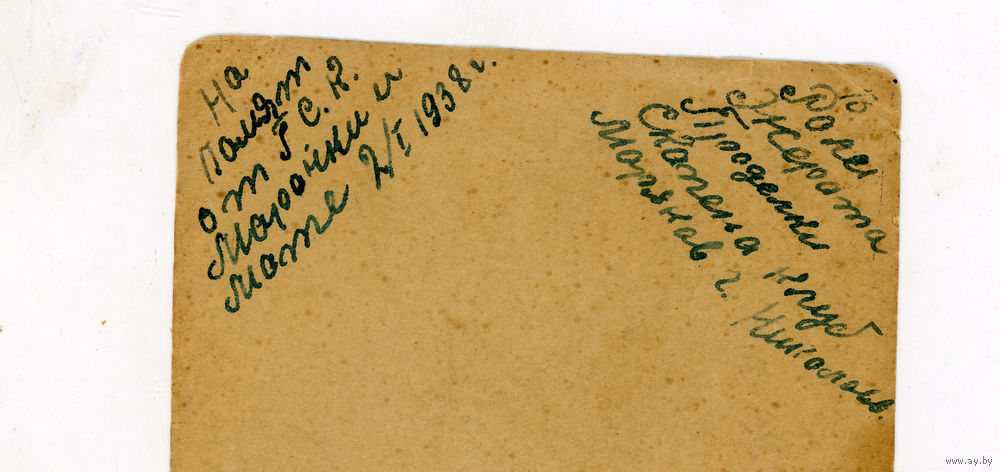 На
Память
от Г. С. К.
Маройки и
Моте 2/I 1938 г.
Роли
Жерома
Проделки
Скапена клуб
Моряков г. Николаев.
www.ay.by